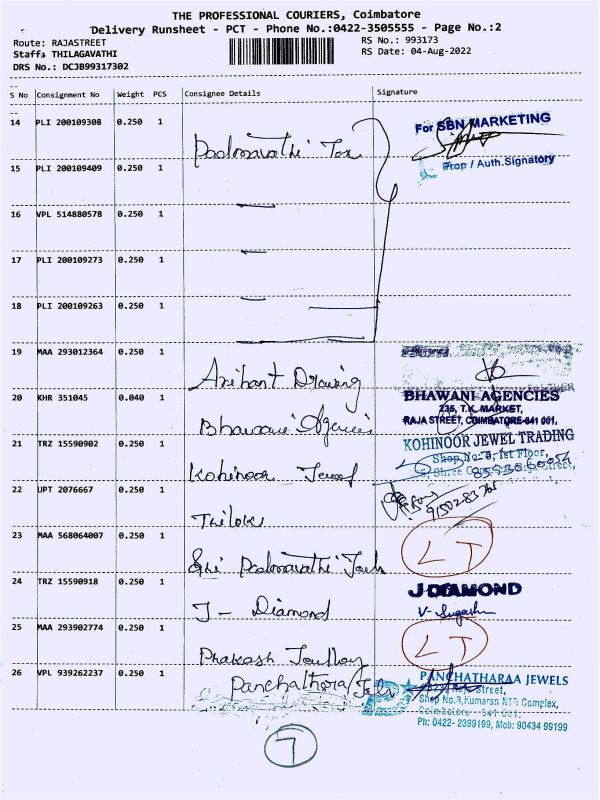 THE PROFESSIONAL COURIERS, Coimbatore
Delivery Runsheet - PCT - Phone No.:0422-3505555 - Page No.:2
Route: RAJASTREET
Staff: THILAGAVATHI
DRS No.: DCJB99317302
RS No.: 993173
RS Date: 04-Aug-2022
S No Consignment No Weight PCS Consignee Details Signature
14 PLI 200109308 0.250 1 Padmavathi Tex
For SBN MARKETING
Prop / Auth.Signatory
15 PLI 200109409 0.250 1
16 VPL 514880578 0.250 1
17 PLI 200109273 0.250 1
18 PLI 200109263 0.250 1
19 MAA 293012364 0.250 1 Arihant Drawing
20 KHR 351045 0.040 1 Bhawani Agencies
BHAWANI AGENCIES
235, T.K. MARKET,
RAJA STREET, COIMBATORE-641 001.
21 TRZ 15590902 0.250 1 Kohinoor Jewel
KOHINOOR JEWEL TRADING
Shop No-8, 1st Floor,
Street,
22 UPT 2076667 0.250 1 Thilok
23 MAA 568064007 0.250 1 Shri Padmavathi Jewls
LJ
24 TRZ 15590918 0.250 1 J- Diamond
J DIAMOND
25 MAA 293902774 0.250 1 Prakash
LJ
26 VPL 939262237 0.250 1 Panchathara Jels
PANCHATHARAA JEWELS
Street,
Shop No.3,Kumaran NTR Complex,
Coimbatore - 641 001.
Ph: 0422- 2399199, Mob: 90434 99199
7